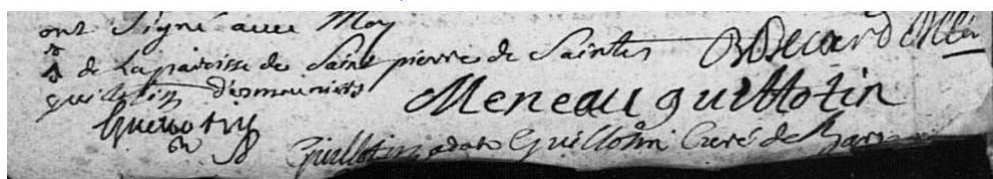 ont Signé avec Moy
de La paroisse de Saint pierre de Saintes
guillotin desmouniers
Meneau guillotin
Guillotin
Guillotin Guillotin Curé de